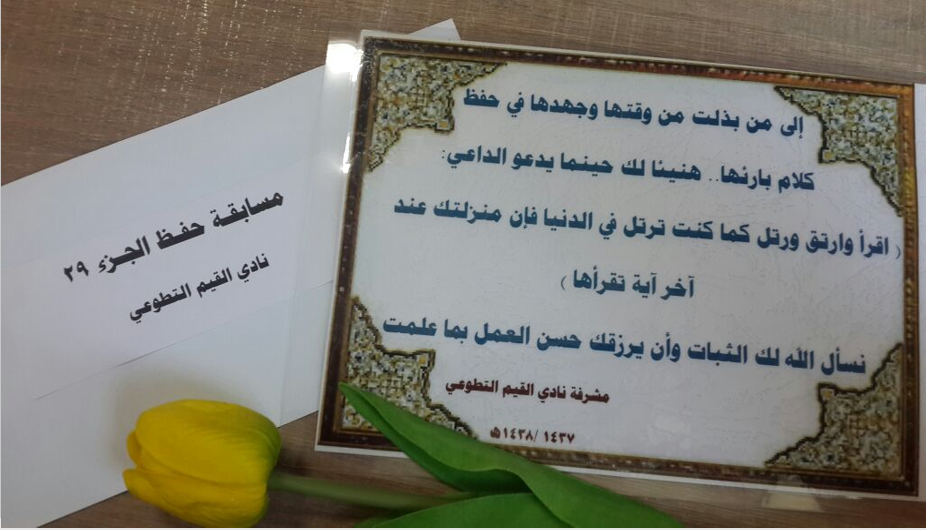 إلى من بذلت من وقتها وجهدها في حفظ
كلام بارئها.. هنيئا لك حينما يدعو الداعي:
( اقرأ وارتق ورتل كما كنت ترتل في الدنيا فإن منزلتك عند
آخر آية تقرأها )
نسأل الله لك الثبات وأن يرزقك حسن العمل بما علمت
مشرفة نادي القيم التطوعي
١٤٣٧ /١٤٣٨هـ
مسابقة حفظ الجزء ٢٩
نادي القيم التطوعي